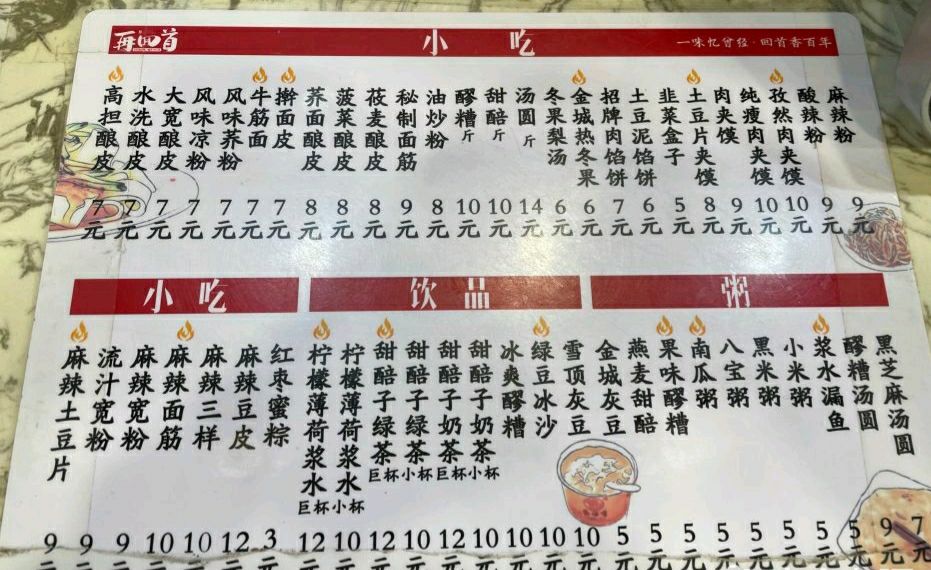 再回首
小吃
一味忆曾经·回首香百年
高担酿皮 7元
水洗酿皮 7元
大宽酿皮 7元
风味凉粉 7元
风味荞粉 7元
牛筋面 7元
擀面皮 7元
荞面酿皮 8元
菠菜酿皮 8元
莜麦酿皮 8元
秘制面筋 9元
油炒粉 8元
醪糟斤 10元
甜醅斤 10元
汤圆斤 14元
冬果梨汤 6元
金城热冬果 6元
招牌肉馅饼 7元
土豆泥馅饼 6元
韭菜盒子 5元
土豆片夹馍 8元
肉夹馍 9元
纯瘦肉夹馍 10元
孜然肉夹馍 10元
酸辣粉 9元
麻辣粉 9元
小吃
麻辣土豆片 9元
流汁宽粉 9元
麻辣宽粉 9元
麻辣面筋 10元
麻辣三样 10元
麻辣豆皮 12元
红枣蜜粽 3元
饮品
柠檬薄荷浆水巨杯 12元
柠檬薄荷浆水小杯 10元
甜醅子绿茶巨杯 12元
甜醅子绿茶小杯 10元
甜醅子奶茶巨杯 12元
甜醅子奶茶小杯 10元
冰爽醪糟 10元
绿豆冰沙 10元
雪顶灰豆 10元
粥
金城灰豆 5元
燕麦甜醅 5元
果味醪糟 5元
南瓜粥 5元
八宝粥 5元
黑米粥 5元
小米粥 5元
浆水漏鱼 5元
醪糟汤圆 9元
黑芝麻汤圆 7元